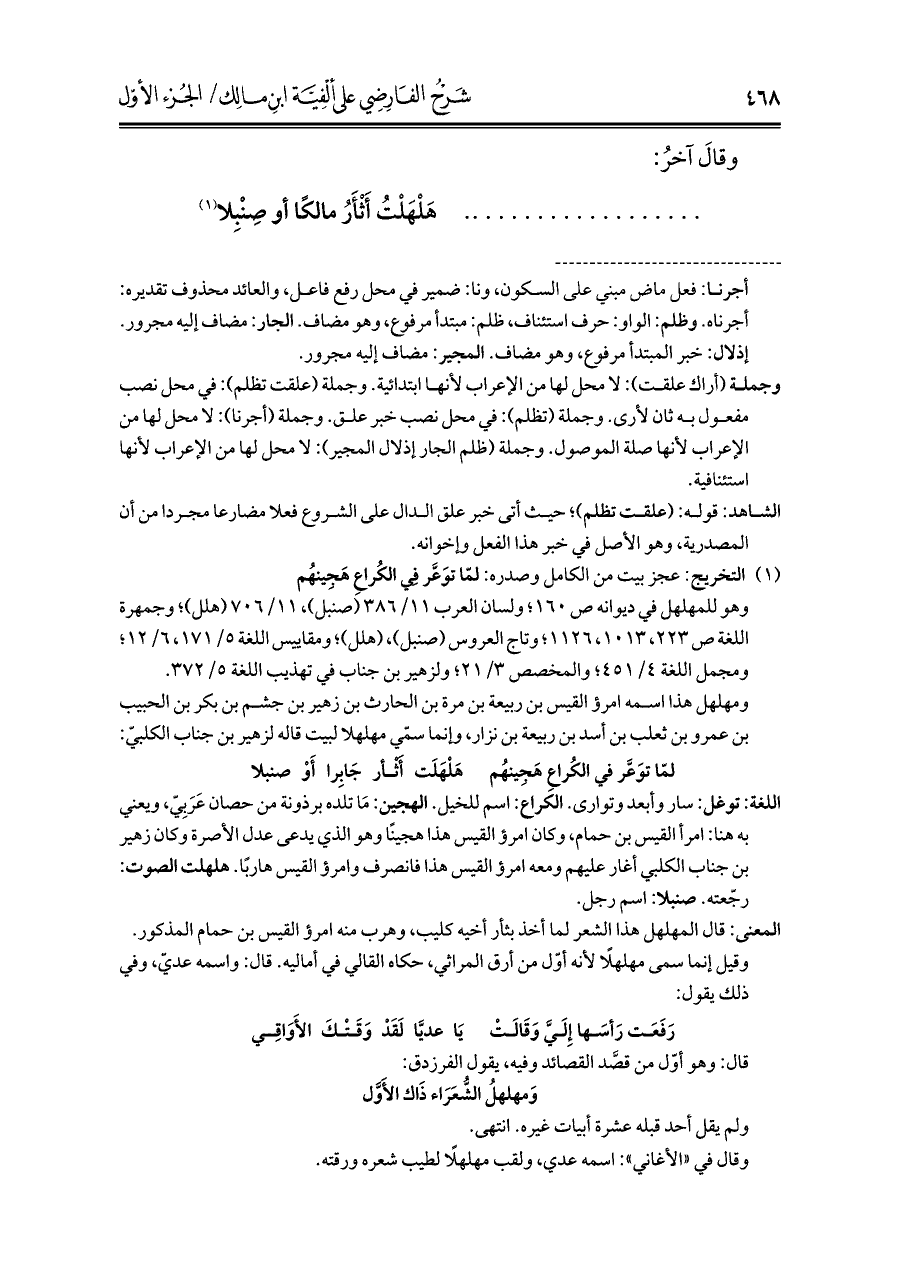 ٤٦٨ شَرْحُ الفَارِضِي على ألْفِيَّة ابنِ مَالِك/ الجُزء الأوّل
وقالَ آخرُ:
. . . . . . . . . . . . . . . . . . . هَلْهَلْتُ أَثْأَرُ مالكًا أو صِنْبِلا(١)
أجرنـا: فعل ماض مبني على السكون، ونا: ضمير في محل رفع فاعل، والعائد محذوف تقديره:
أجرناه. وظلم: الواو: حرف استئناف، ظلم: مبتدأ مرفوع، وهو مضاف. الجار: مضاف إليه مجرور.
إذلال: خبر المبتدأ مرفوع، وهو مضاف. المجير: مضاف إليه مجرور.
وجملة (أراك علقت): لا محل لها من الإعراب لأنها ابتدائية. وجملة (علقت تظلم): في محل نصب
مفعول به ثان لأرى. وجملة (تظلم): في محل نصب خبر علق. وجملة (أجرنا): لا محل لها من
الإعراب لأنها صلة الموصول. وجملة (ظلم الجار إذلال المجير): لا محل لها من الإعراب لأنها
استئنافية.
الشاهد: قوله: (علقت تظلم)؛ حيث أتى خبر علق الدال على الشروع فعلا مضارعا مجردا من أن
المصدرية، وهو الأصل في خبر هذا الفعل وإخوانه.
(١) التخريج: عجز بيت من الكامل وصدره: لمّا توَعَّر فِي الكُراعِ هَجِينهُم
وهو للمهلهل في ديوانه ص ١٦٠؛ ولسان العرب ١١/ ٣٨٦ (صنبل)، ١١/ ٧٠٦ (هلل)؛ وجمهرة
اللغة ص ٢٢٣، ١٠١٣، ١١٢٦؛ وتاج العروس (صنبل)، (هلل)؛ ومقاييس اللغة ٥/ ١٧١، ٦/ ١٢؛
ومجمل اللغة ٤/ ٤٥١؛ والمخصص ٣/ ٢١؛ ولزهير بن جناب في تهذيب اللغة ٥/ ٣٧٢.
ومهلهل هذا اسمه امرؤ القيس بن ربيعة بن مرة بن الحارث بن زهير بن جشم بن بكر بن الحبيب
بن عمرو بن ثعلب بن أسد بن ربيعة بن نزار، وإنما سمّي مهلهلا لبيت قاله لزهير بن جناب الكلبيّ:
لمّا توَعَّر في الكُراعِ هَجِينهُم هَلْهَلَت أَثْـأر جَابِرا أَوْ صنبلا
اللغة: توغل: سار وأبعد وتوارى. الكراع: اسم للخيل. الهجين: مَا تلده برذونة من حصان عَرَبِيّ، ويعني
به هنا: امرأ القيس بن حمام، وكان امرؤ القيس هذا هجينًا وهو الذي يدعى عدل الأصرة وكان زهير
بن جناب الكلبي أغار عليهم ومعه امرؤ القيس هذا فانصرف وامرؤ القيس هاربًا. هلهلت الصوت:
رجّعته. صنبلا: اسم رجل.
المعنى: قال المهلهل هذا الشعر لما أخذ بثأر أخيه كليب، وهرب منه امرؤ القيس بن حمام المذكور.
وقيل إنما سمى مهلهلًا لأنه أوّل من أرق المراثي، حكاه القالي في أماليه. قال: واسمه عديّ، وفي
ذلك يقول:
رَفَعَـت رَأسَـها إِلَـيَّ وَقَالَـتْ يَا عديًّا لَقَدْ وَقَـتْـكَ الأَوَاقِـي
قال: وهو أوّل من قصَّد القصائد وفيه، يقول الفرزدق:
وَمهلهلُ الشُّعَرَاء ذَاك الأَوَّل
ولم يقل أحد قبله عشرة أبيات غيره. انتهى.
وقال في «الأغاني»: اسمه عدي، ولقب مهلهلًا لطيب شعره ورقته.